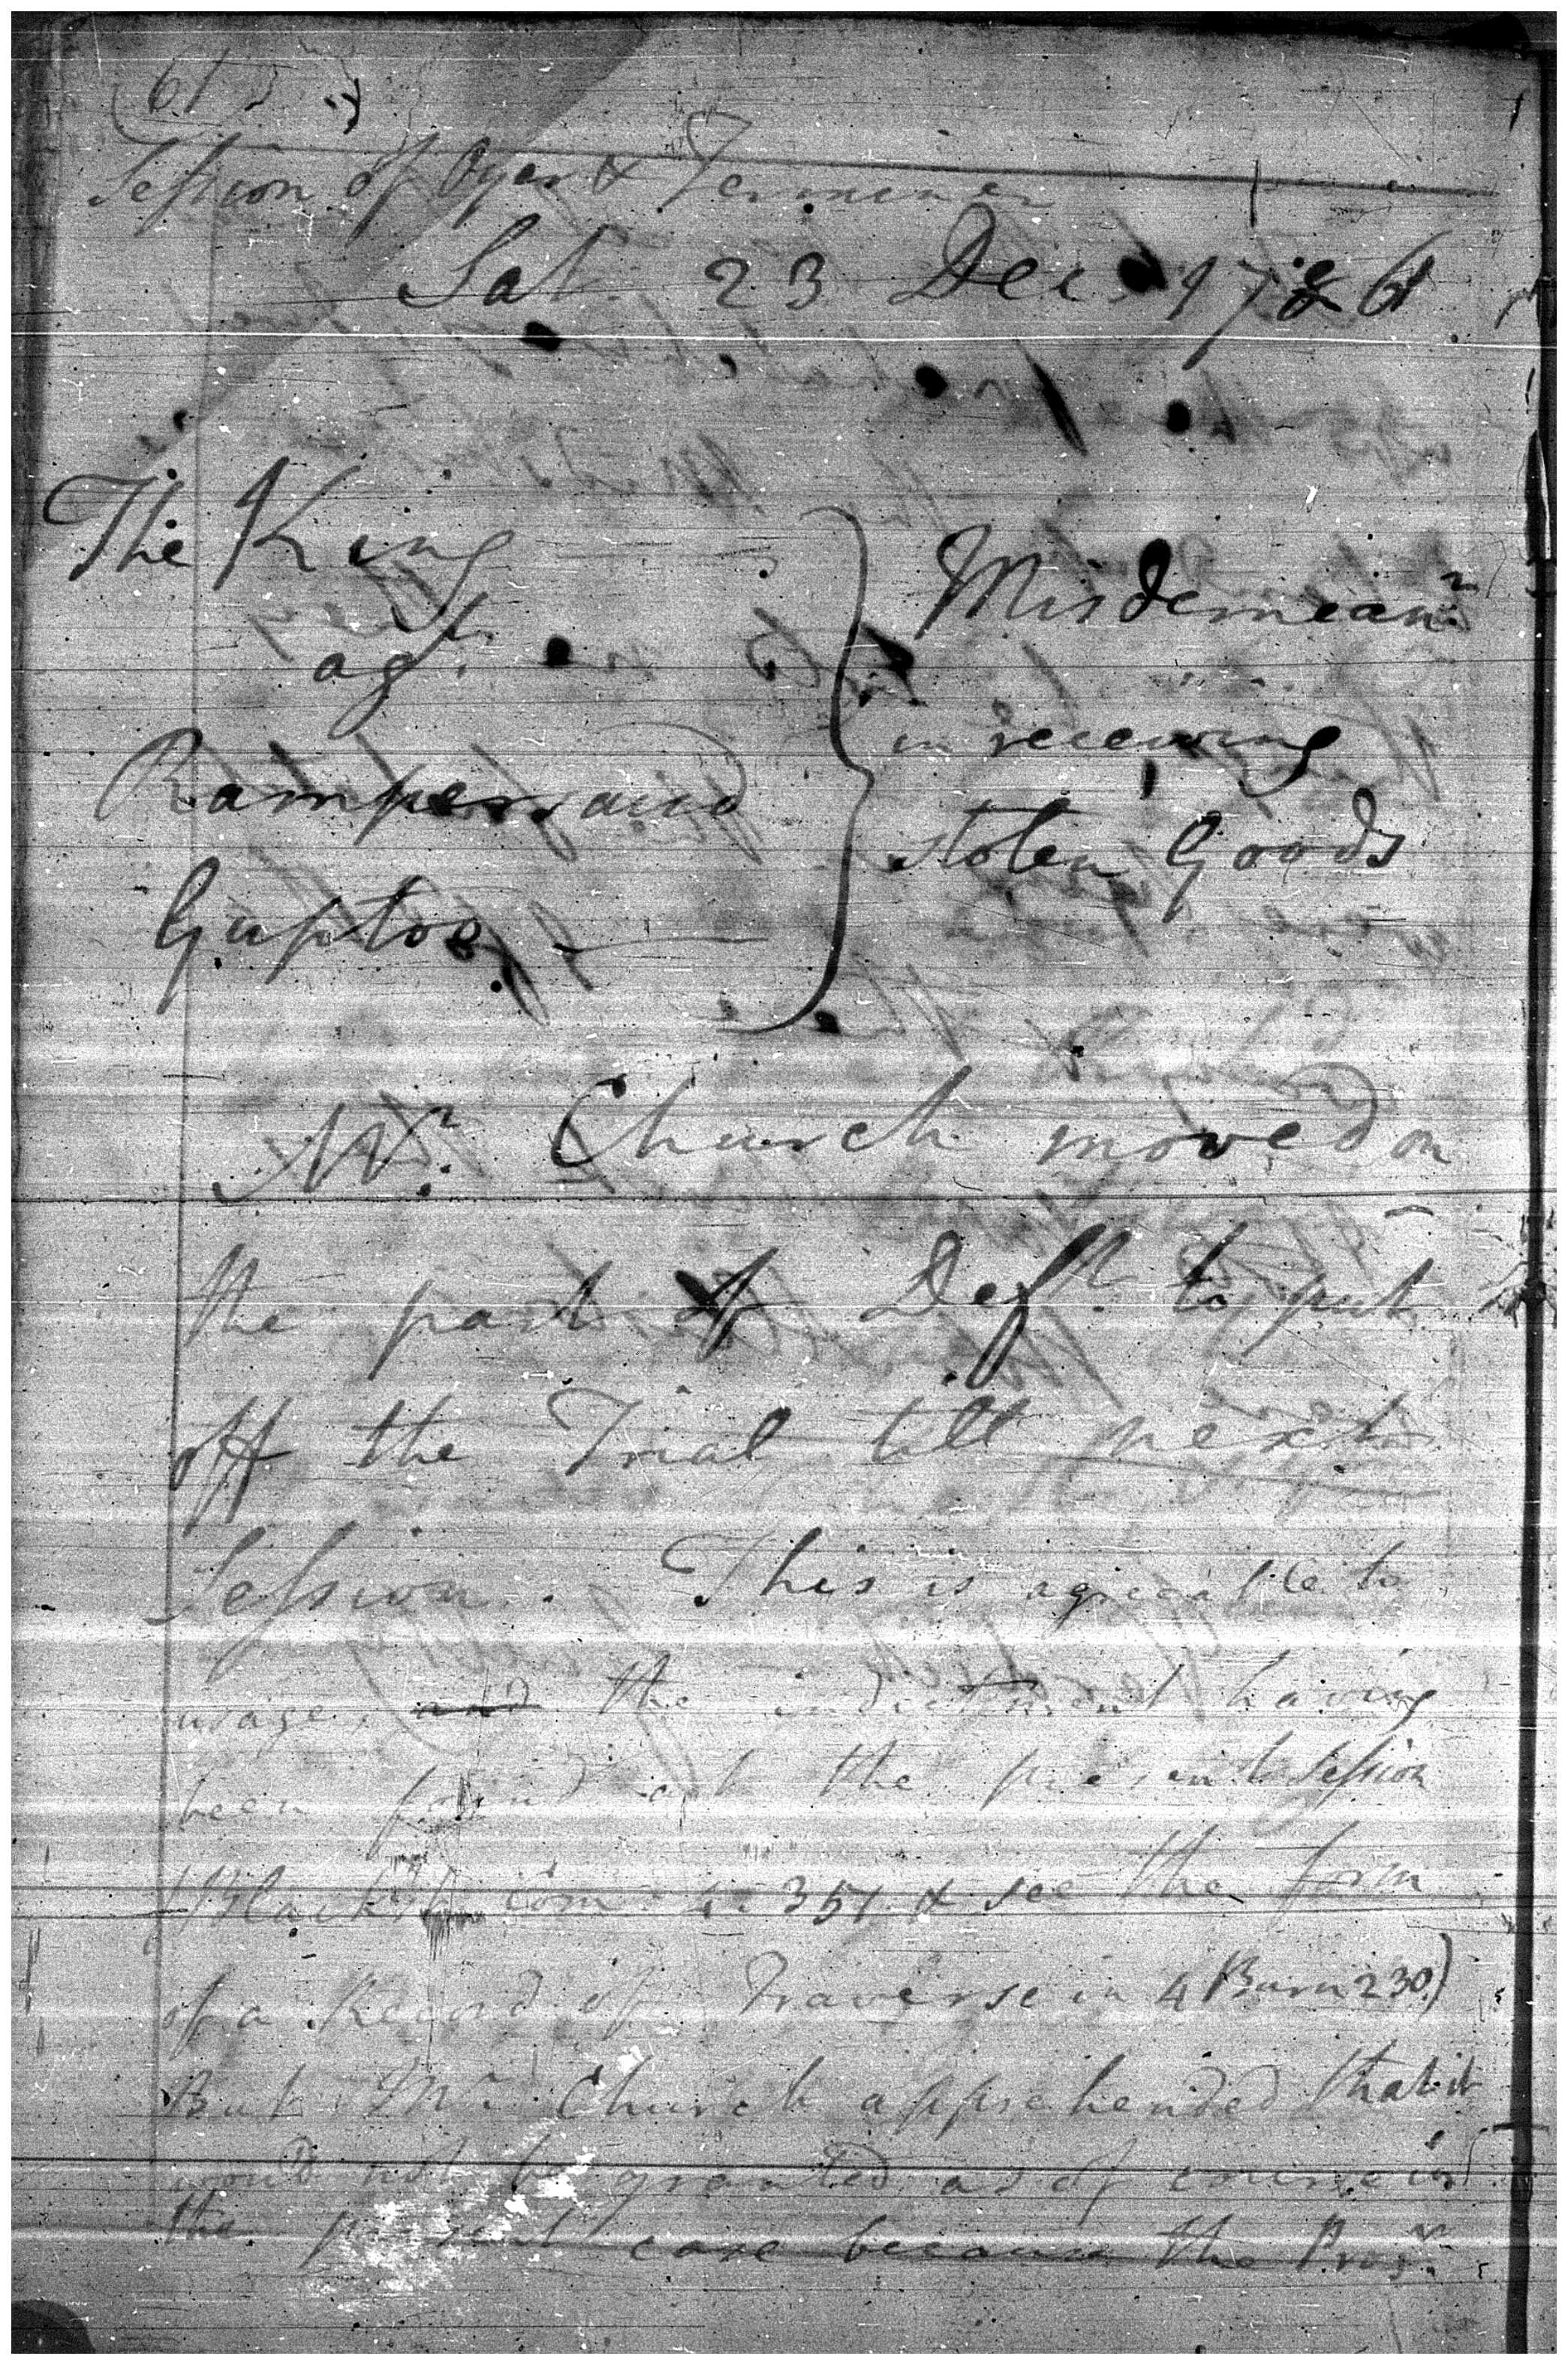 61
Session of Oyer & Terminer
Sat. 23 Dec. 1786
The King
agt.
Rampersaud
Guptoe
Misdemeanr.
in receiving
stolen Goods
Mr. Church moved on
the part of Deft. to put
off the Trial till next
Session. This is agreeable to
usage, and the indictment having
been found at the present Session
(Blackst. Com. 4. 351. & see the form
of a Record of Traverse in 4 Burn 230.)
But Mr. Church apprehended that it
would not be granted as of course in
the present case because the Prosr.